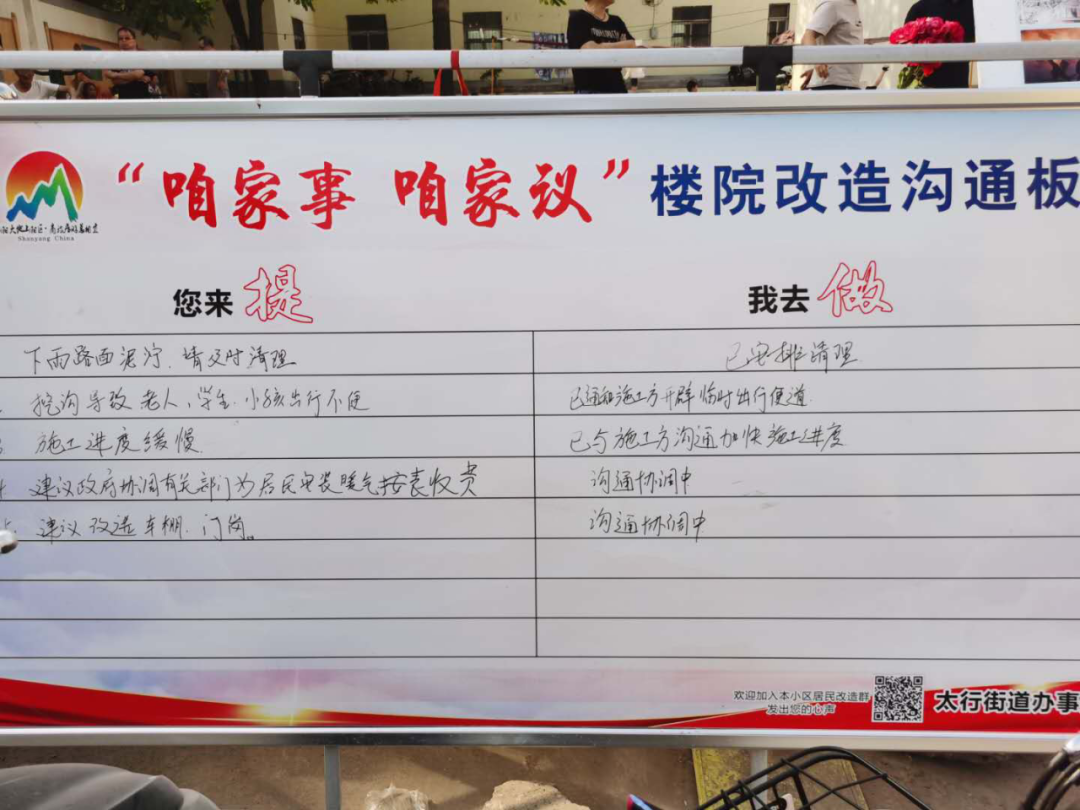 “咱家事 咱家议”楼院改造沟通板
Shanyang China
您来提
我去做
下雨路面泥泞.请及时清理
已安排清理
挖沟导改老人、学生.小孩出行不便
已通知施工方开辟临时出行便道
施工进度缓慢.
已与施工方沟通加快施工进度
建议政府协调有关部门为居民安装暖气按表收费
沟通协调中
建议改造车棚.门岗。
沟通协调中
欢迎加入本小区居民改造群
发出您的心声
太行街道办事